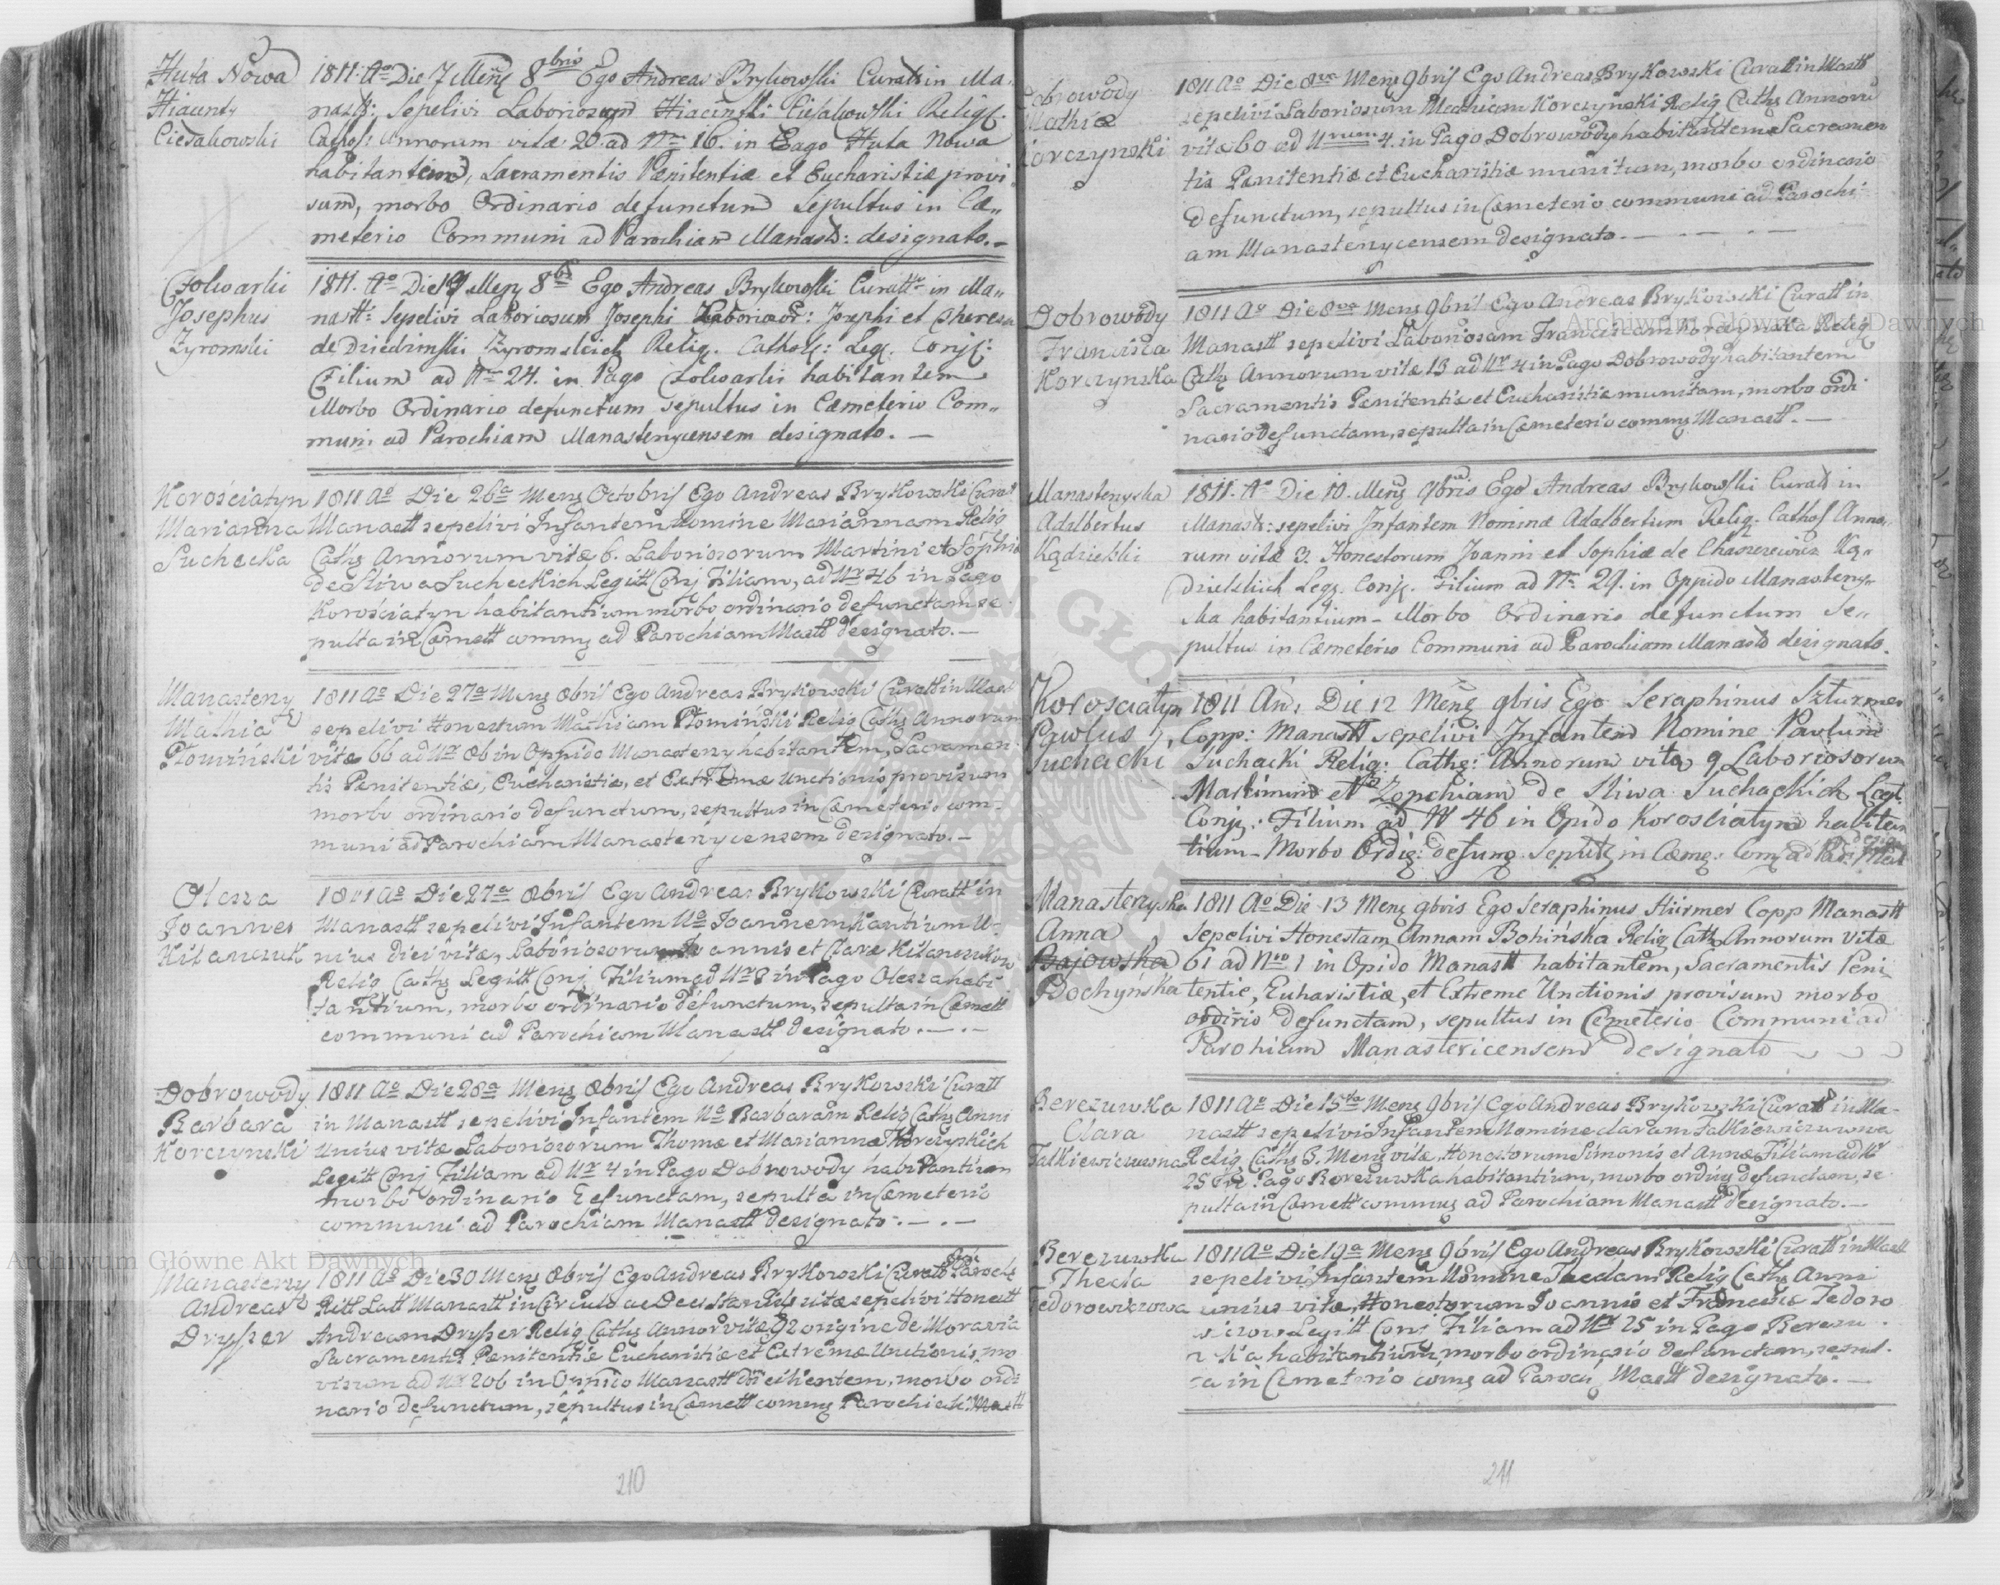 Huta Nowa
Hiacinty
Ciesakowski
1811. Ao Die 7 Mens 8bris Ego Andreas Brykowski Curat in Ma-
nastt: sepelivi Laboriosum Hiacinski Ciesakowski Relig:
Cathol: Annorum vitæ 20 ad Nr 16. in Pago Huta Nowa
habitantem, Sacramentis Pænitentiæ et Eucharistiæ provi-
sum, morbo Ordinario defunctum Sepultus in Cæ-
meterio Communi ad Parochiam Manastt: designato.
Folwarki
Josephus
Zyromski
1811. Ao Die 19 Mens 8bris Ego Andreas Brykowski Curatt in Ma-
nastt: Sepelivi Laboriosum Josephi Laborioso: Josephi et Theresia
de Dziedzinski Zyromskich Relig. Cathol: Leg. Conj:
Filium ad Nr 24. in Pago Folwarki habitantem
Morbo Ordinario defunctum sepultus in Cæmeterio Com-
muni ad Parochiam Manasterycensem designato.
Korościatyn
Marianna
Suchecka
1811 Ao Die 26a Mens Octobris Ego Andreas Brykowski Curat
Manastt sepelivi Infantem Nomine Mariannam Relig
Cath Annorum vitæ 6. Laboriosorum Martini et Sophia
de Sliwa Sucheckich Legitt Conj Filiam, ad Nr 46 in Pago
Korościatyn habitantium morbo ordinario defunctam se-
pulta in Cæmett comm ad Parochiam Mastt designato.
Manastery
Mathia
Płomiński
1811 Ao Die 27a Mens 8bris Ego Andreas Brykowski Curatt in Mast
sepelivi Honestum Mathiam Płomiński Relig Cath Annorum
vitæ 66 ad Nr 86 in Oppido Manastery habitantem, Sacramen-
tis Penitentiæ, Eucharistiæ, et Extremæ Unctionis provisum
morbo ordinario defunctum, sepultus in Cæmeterio com-
muni ad Parochiam Manasterycensem designato.
Olesza
Joannes
Kitanczuk
1811 Ao Die 27a 8bris Ego Andreas Brykowski Curatt in
Manastt sepelivi Infantem No Joannem Kantium U-
nius diei vitæ, Laboriosorum Joannis et Claræ Kitanczukow
Relig Cath Legitt Conj Filium ad Nr 8 in Pago Olesza habi
tantium, morbo ordinario defunctum, sepulta in Cæmett
communi ad Parochiam Manastt designato.
Dobrowody
Barbara
Korczynski
1811 Ao Die 28a Mens 8bris Ego Andreas Brykowski Curatt
in Manastt sepelivi Infantem No Barbaram Relig Cath Anni
Unius vitæ Laboriosorum Thomæ et Mariannæ Korczynskich
Legitt Conj Filiam ad Nr 4 in Pago Dobrowody habitantium
morbo ordinario defunctam, sepulta in Cæmeterio
communi ad Parochiam Manastt designato.
Manastery
Andreas
Drysser
1811 Ao Die 30 Mens 8bris Ego Andreas Brykowski Curatt Paroch
Ritt Latt Manastt in Circulo sepelivi Honestt
Andream Drysser Relig Cath Annor vitæ 92 origine de Moravia
Sacramentis Pænitentiæ Eucharistiæ et Extremæ Unctionis pro
visum ad Nr 206 in Oppido Manastt morbo ordi
nario defunctum, sepultus in Cæmett comm Parochiæ Mastt
210
Dobrowody
Mathiæ
Korczynski
1811 Ao Die 8va Mens 9bris Ego Andreas Brykowski Curatt in Mastt
sepelivi Laboriosum Korczynski Relig Cath Annoru
vitæ 60 ad Nrum 4. in Pago Dobrowody habitantem Sacramen
tis Penitentiæ et Eucharistiæ munitum, morbo ordinario
defunctum, sepultus in Cæmeterio communi ad Parochi
am Manasterycensem designato.
Dobrowody
Francisca
Korczynska
1811 Ao Die 8va Mens 9bris Ego Andreas Brykowski Curatt in
Manastt sepelivi Laboriosam Franciscam Korczynska Relig
Cath Annorum vitæ 13 ad Nr 4 in Pago Dobrowody habitantem
Sacramentis Pænitentiæ et Eucharistiæ munitam, morbo ordi
nario defunctam, sepulta in Cæmeterio comm Manastt.
Manasterzyska
Adalbertus
Kądzielski
1811. Ao Die 10. Mens 9bris Ego Andreas Brykowski Curat in
Manast: sepelivi Infantem Nomine Adalbertum Relig: Cathol Anno-
rum vitæ 3. Honestorum Joanni et Sophiæ de Ką-
dzielskich Leg. Conj. Filium ad Nr 29. in Oppido Manastery-
ska habitantium Morbo Ordinario defunctum Se-
pultus in Cæmeterio Communi ad Parochiam Manast designato.
Korosciatyn
Pawlus
Suchacki
1811 An: Die 12 Mens 9bris Ego Seraphinus Szturmer
Copp: Manastt sepelivi Infantem Nomine Pavlum
Suchacki Relig: Cath: Annorum vitæ 9 Laboriosorum
Martinum et Zophiam de Sliwa Suchackich Legt.
Conj: Filium ad Nr 46 in Opido Korosciatyn habitan
tium Morbo Ordig: defung. Sepultz in Cæmg: Comg ad Par: Mast
desig
Manasterzyska
Anna
Bochyńska
1811 Ao Die 13 Mens 9bris Ego Seraphinus Stürmer Copp Manastt
Sepelivi Honestam Annam Bohińska Relig Cath Annorum vitæ
61 ad Nro 1 in Opido Manastt habitantem, Sacramentis Peni
tentie, Euharistiæ, et Extreme Unctionis provisum morbo
ordirio defunctam, sepultus in Cemeterio Communi ad
Parohiam Manastericensem designato
Berezuwka
Clara
Falkiewiczuwna
1811 Ao Die 15ta Mens 9bris Ego Andreas Brykowski Curatt in Ma-
nastt sepelivi Infantem Nomine claram Falkiewiczuwna
Relig Cath 3. Mens vitæ, Honestorum Simonis et Annæ Filiam ad Nr
25 in Pago Berezuwka habitantium, morbo ording defunctam, se
pulta in Cæmett commug ad Parochiam Manastt designato.
Berezuwka
Thecla
Fedorowiczowa
1811 Ao Die 19a Mens 9bris Ego Andreas Brykowski Curatt in Mastt
sepelivi Infantem Nomine Theclam Relig Cath Anni
unius vitæ, Honestorum Joannis et Francisca Fedoro
wiczow Legitt Conj Filiam ad Nr 25 in Pago Berezu
wka habitantium, morbo ordinario defunctam, sepul-
ta in Cemeterio comg ad Paroch Mastt designato.
211
Archiwum Główne Akt Dawnych
Archiwum Główne Akt Dawnych